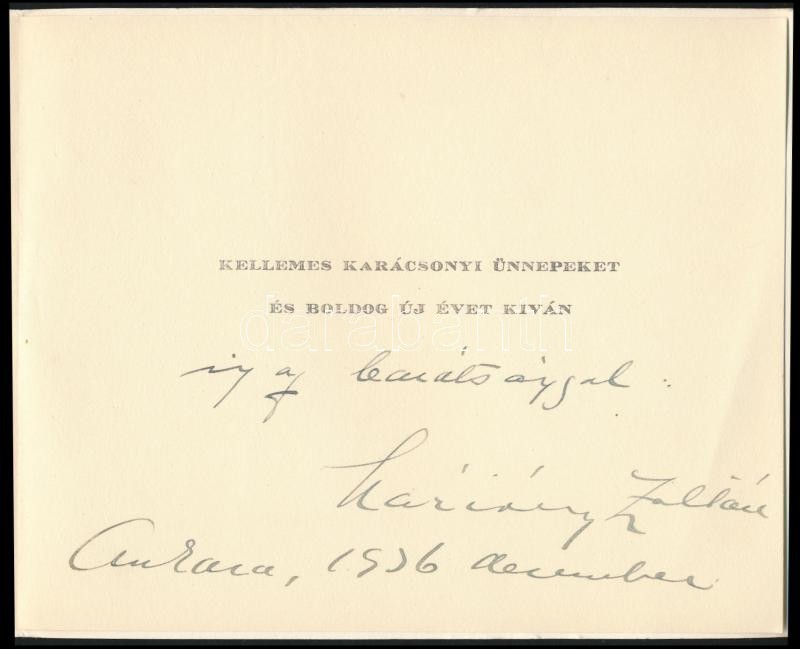 KELLEMES KARÁCSONYI ÜNNEPEKET
ÉS BOLDOG ÚJ ÉVET KIVÁN
darabanth
igaz barátsággal:
Máriássy Zoltán
Ankara, 1936 december